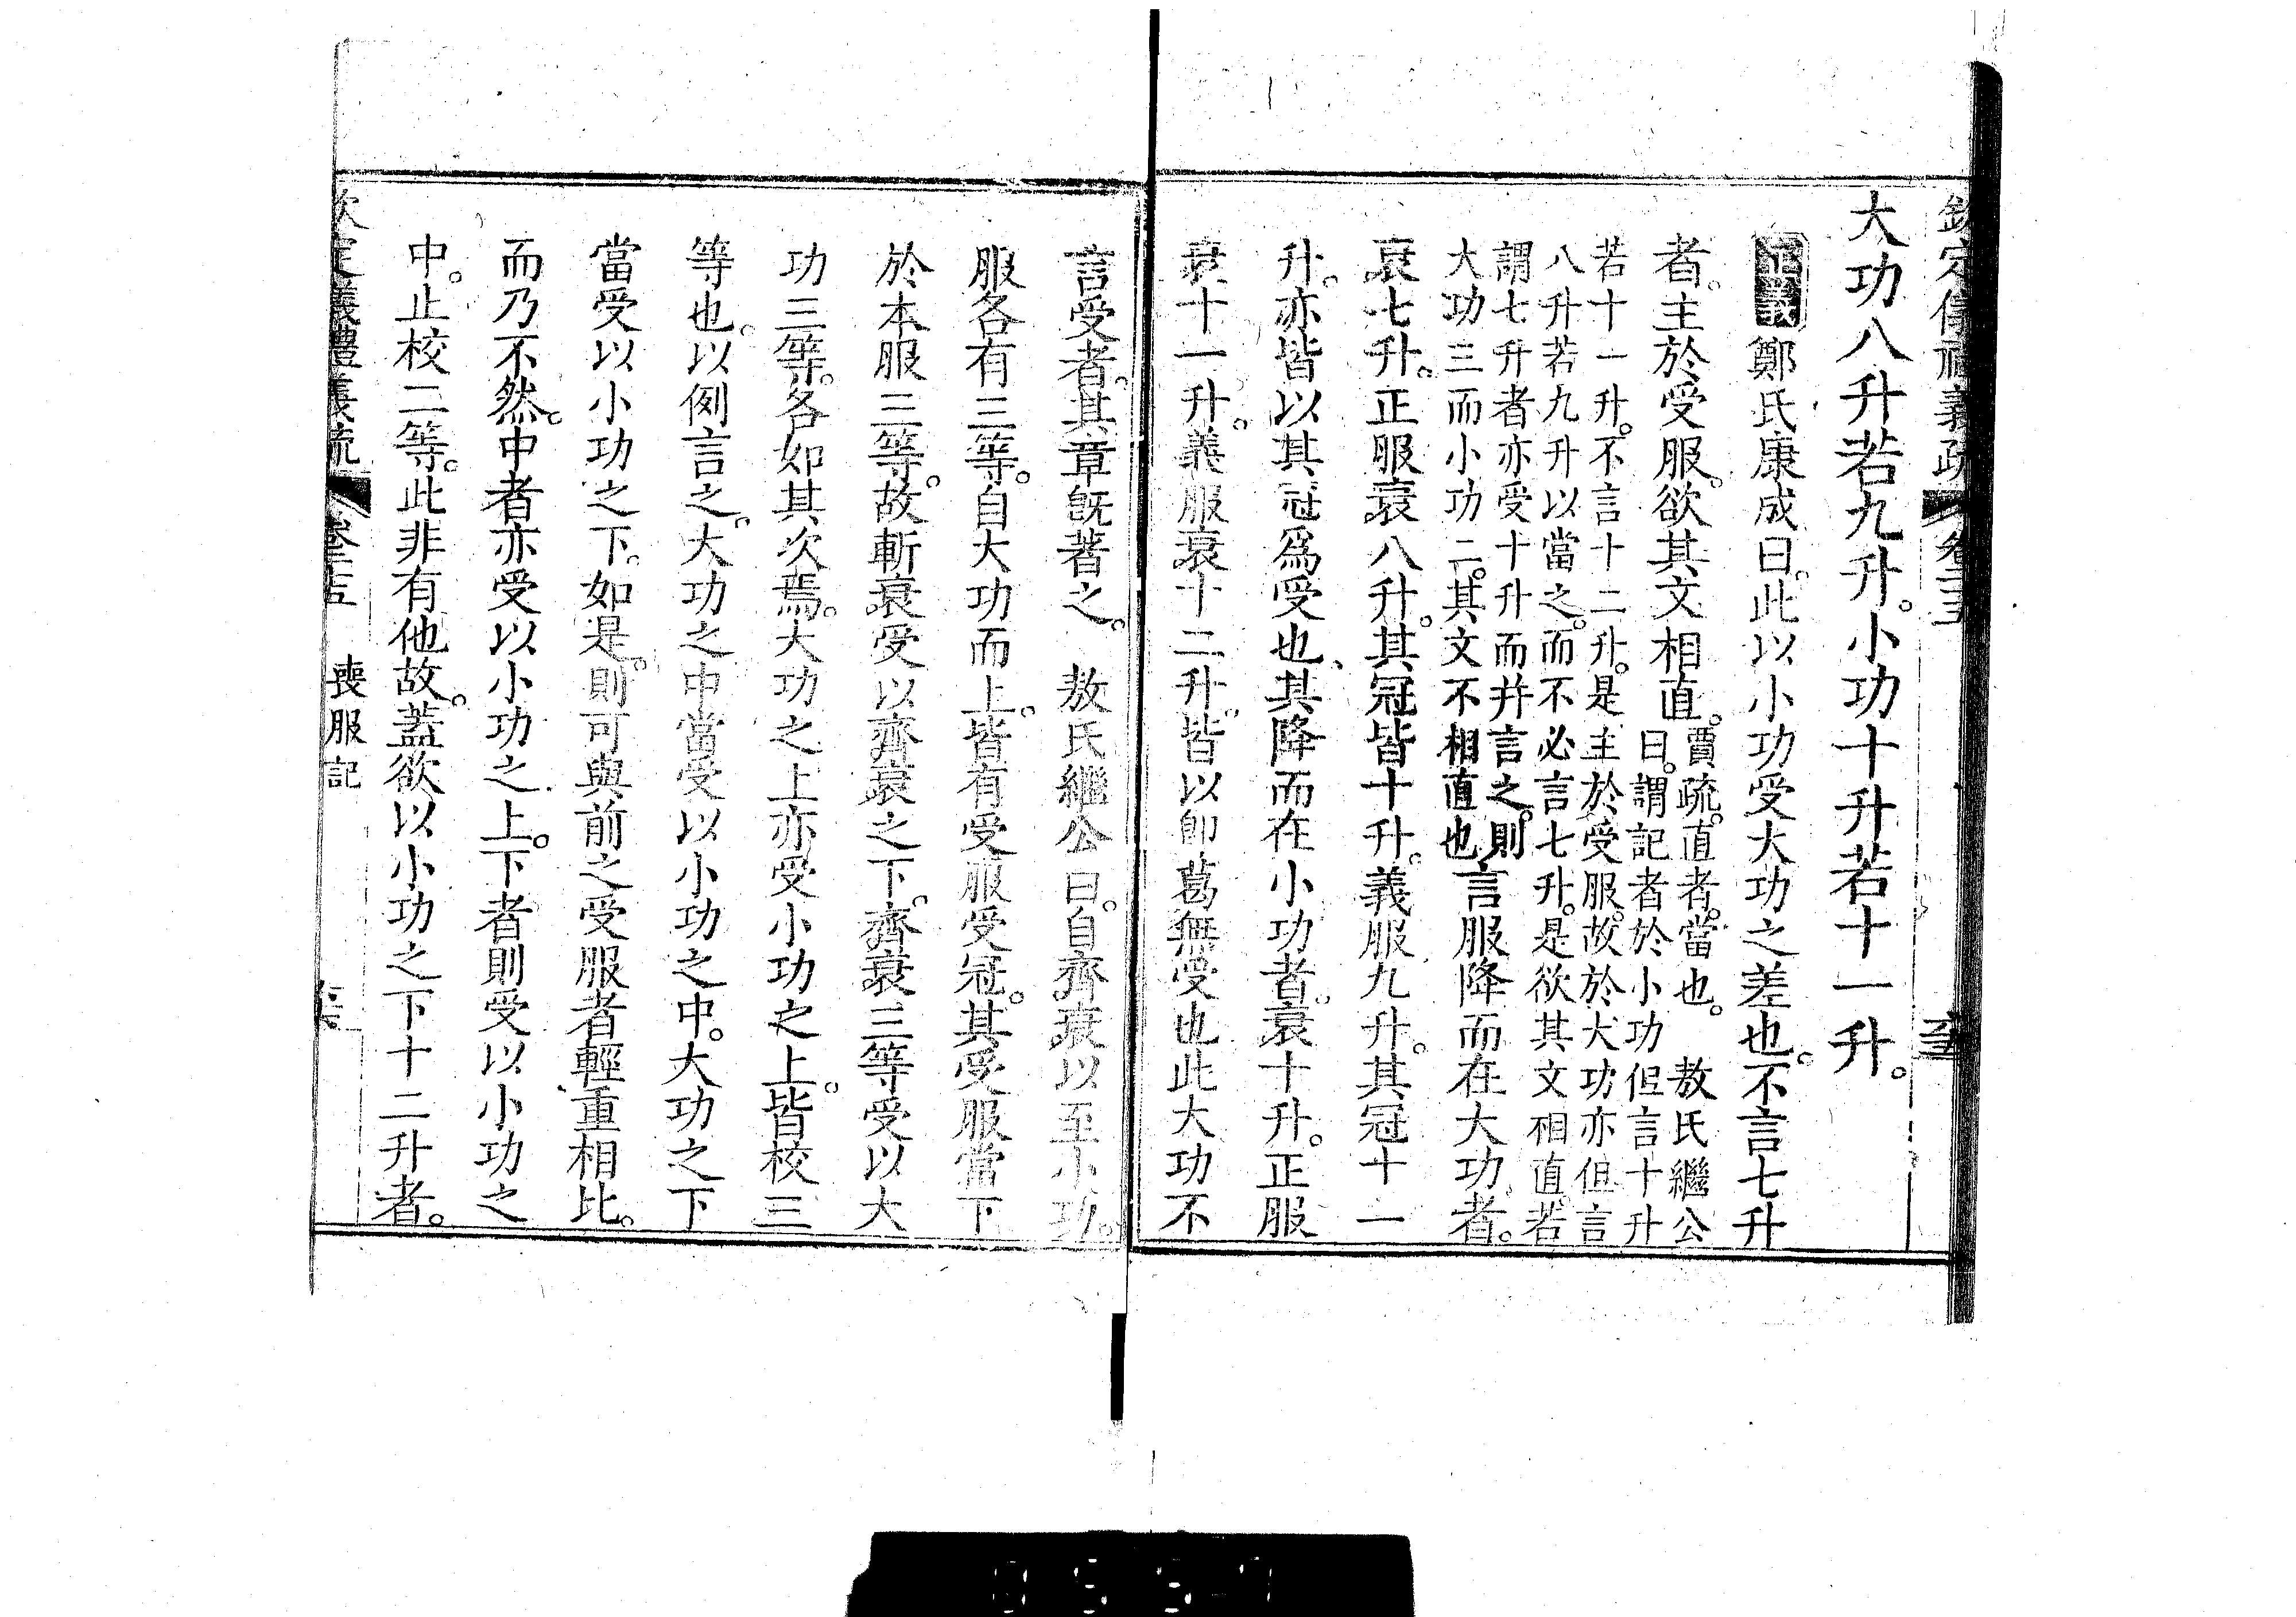 欽定儀禮義疏 卷二十五
大功八升若九升。小功十升若十一升。
正義 鄭氏康成曰。此以小功受大功之差也。不言七升
者。主於受服。欲其文相直。賈疏。直者。當也。 敖氏繼公
曰。謂記者於小功但言十升
若十一升。不言十二升。是主於受服。故於大功亦但言
八升若九升以當之。而不必言七升。是欲其文相直。若
謂七升者亦受十升而并言之。則
大功三而小功二。其文不相直也 言服降而在大功者。
衰七升。正服衰八升。其冠皆十升。義服九升。其冠十一
升。亦皆以其冠爲受也。其降而在小功者。衰十升。正服
衰十一升。義服衰十二升。皆以卽葛無受也此大功不
言受者。其章旣著之。 敖氏繼公曰。自齊衰以至小功。
服各有三等。自大功而上。皆有受服受冠。其受服當下
於本服三等。故斬衰受以齊衰之下。齊衰三等受以大
功三等。各如其次焉。大功之上亦受小功之上。皆校三
等也。以例言之。大功之中當受以小功之中。大功之下
當受以小功之下。如是。則可與前之受服者輕重相比。
而乃不然。中者亦受以小功之上。下者則受以小功之
中。止校二等。此非有他故。蓋欲以小功之下十二升者。
欽定儀禮義疏 卷二十五 喪服記